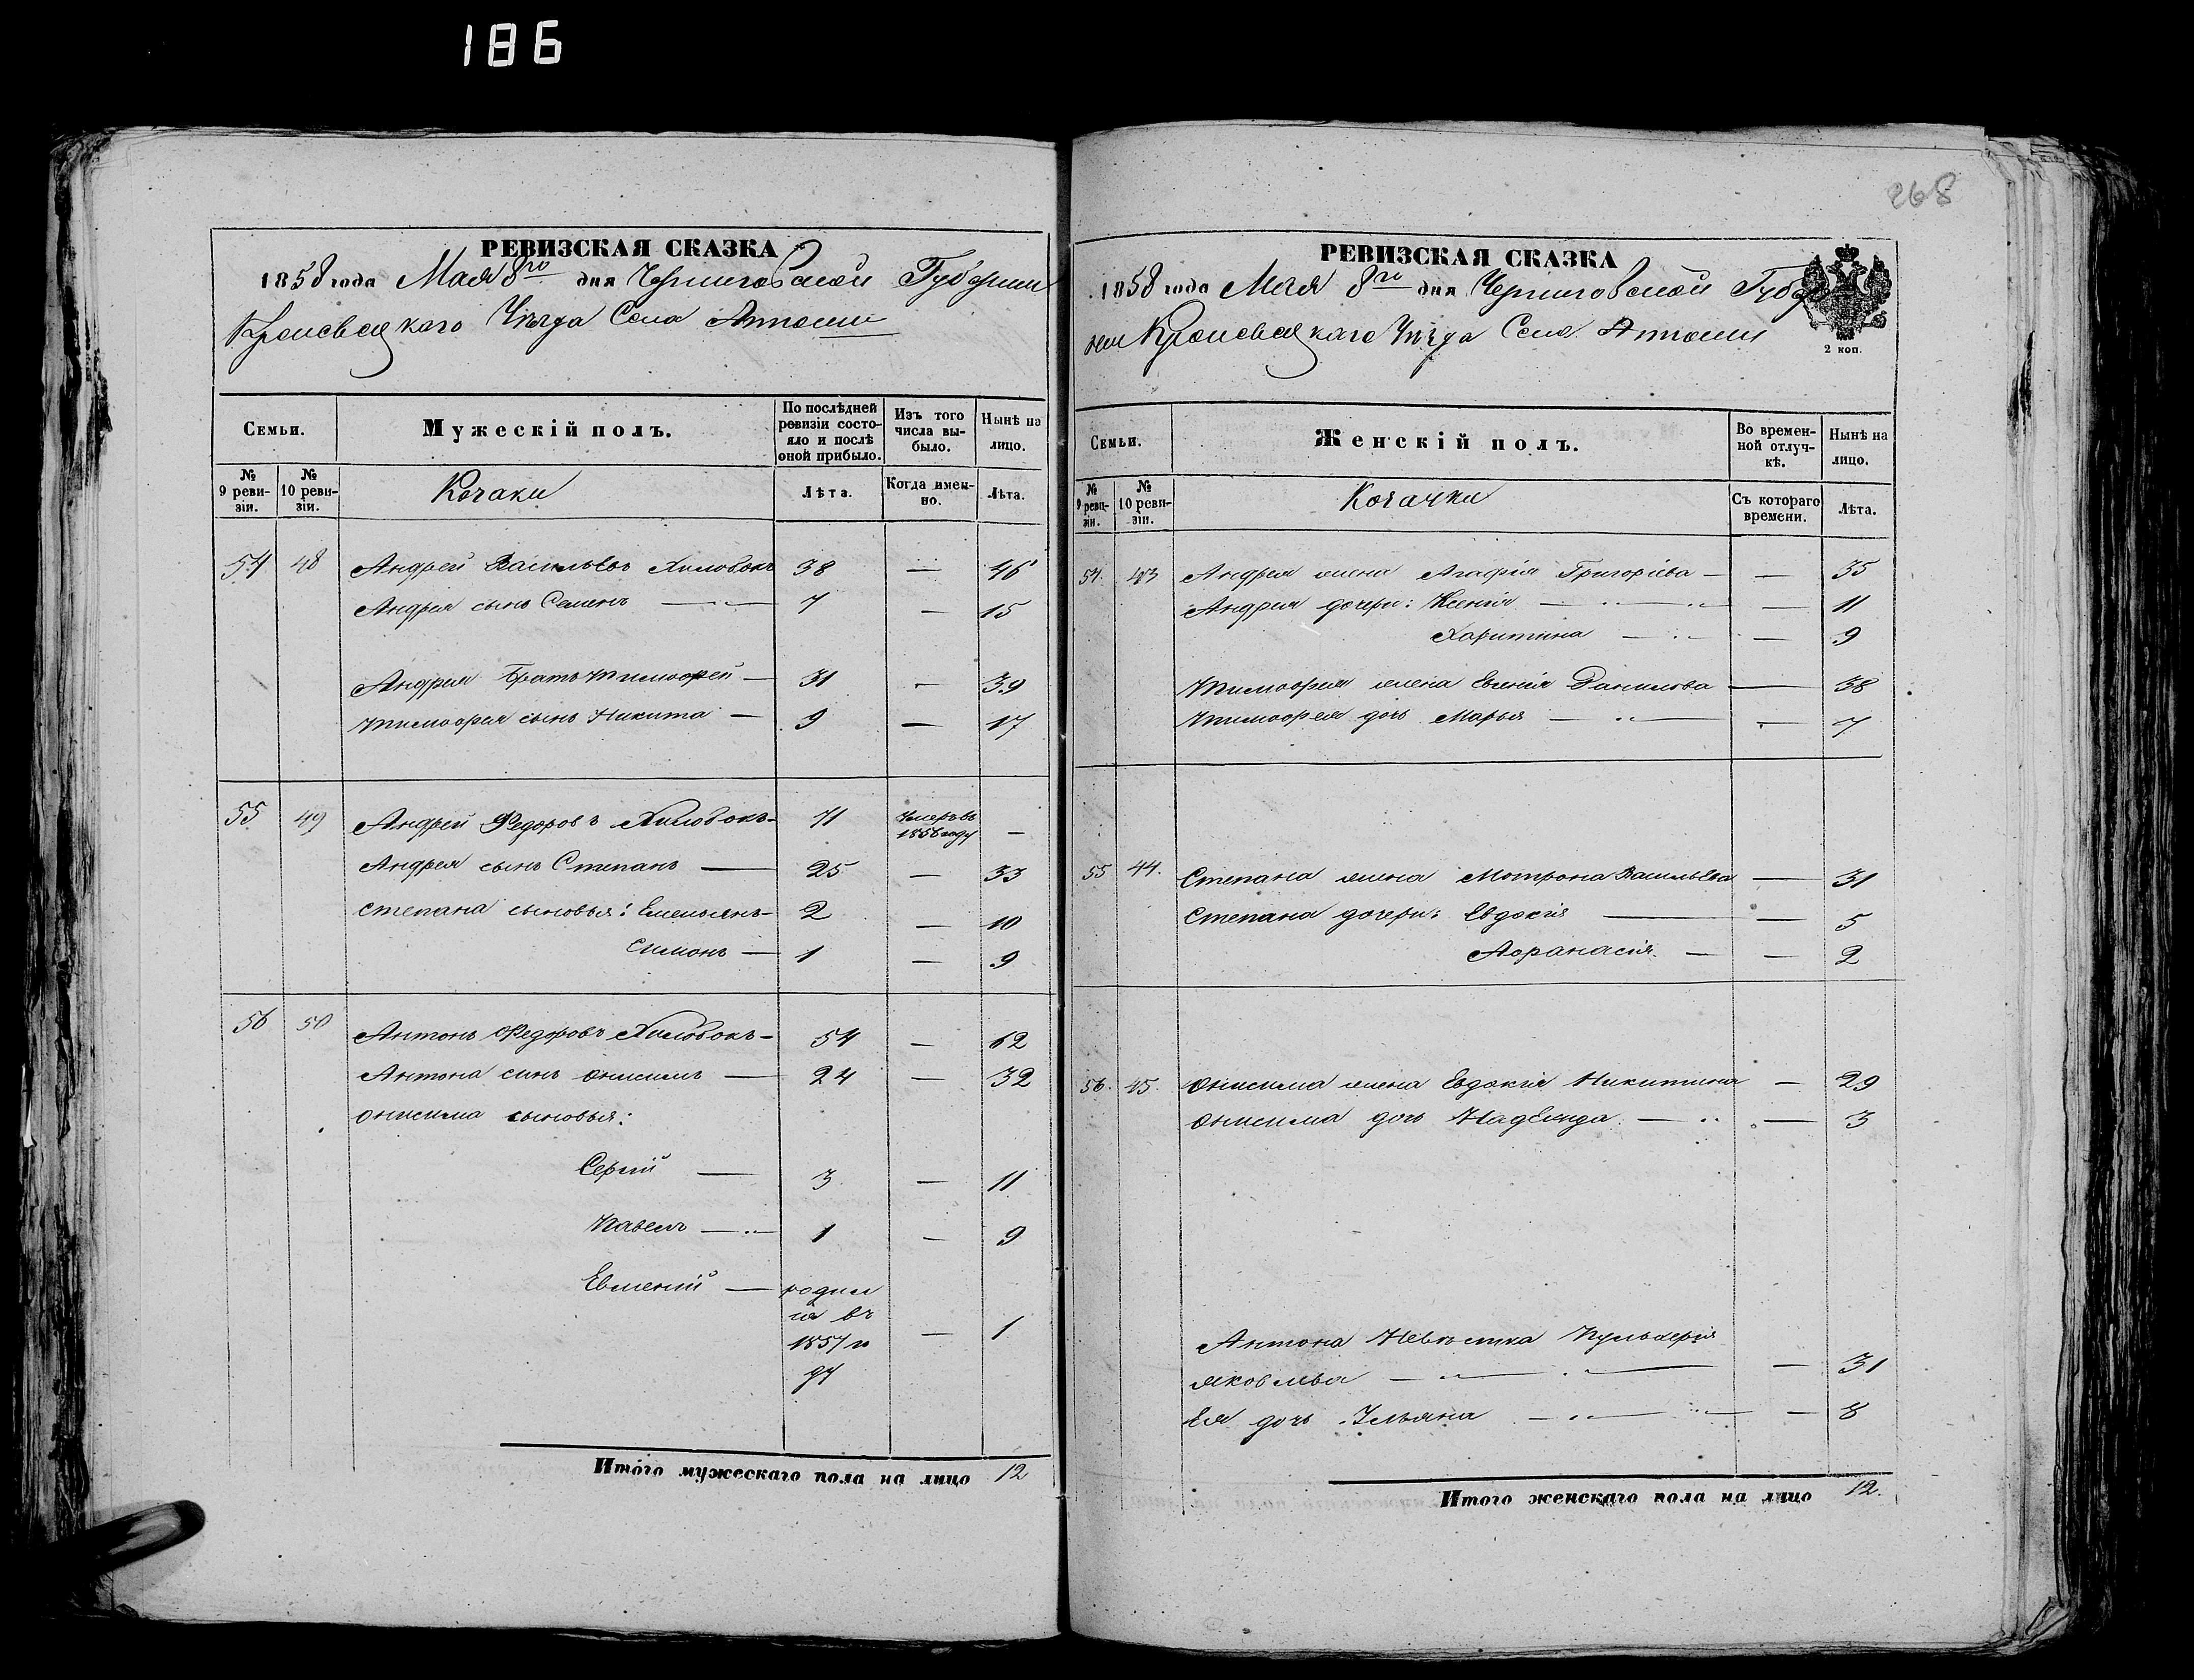 186
268
РЕВИЗСКАЯ СКАЗКА
1858 года Мая 8го дня Черниговской Губернии
Кролевецкаго Уѣзда Села
Семьи. Мужескій полъ. По послѣдней ревизіи состояло и послѣ оной прибыло. Изъ того числа выбыло. Нынѣ на лицо.
№ 9 ревизіи. № 10 ревизіи. Козаки Лѣта. Когда именно. Лѣта.
54 48 Андрей Васильевъ Хиловокъ 38 — 46
Андрея сынъ Семенъ — 7 — 15
Андрея братъ Тимофей — 31 — 39
Тимофея сынъ Никита — 9 — 17
55 49 Андрей Федоровъ Хиловокъ - 71 Умеръ въ 1856 году —
Андрея сынъ Степанъ — 25 — 33
Степана сыновья: Емельянъ - 2 — 10
Симонъ — 1 — 9
56 50 Антонъ Федоровъ Хиловокъ - 54 — 62
Антона синъ Онисимъ — 24 — 32
Онисима сыновья:
Сергій — 3 — 11
Павелъ — 1 — 9
Евмений — родил
ся въ
1857 го — 1
ду
Итого мужескаго пола на лицо 12
РЕВИЗСКАЯ СКАЗКА
1858 года Мая 8го дня Черниговской Губер
нии Кролевецкаго Уѣзда Села
2 коп.
Семьи. Женскій полъ. Во временной отлучкѣ. Нынѣ на лицо.
№ 9 ревизіи. № 10 ревизіи. Козачки Съ котораго времени. Лѣта.
54. 43 Андрея жена Агафія Григоріева — — 35
Андрея дочери: Ксенія — — 11
Харитина — — 9
Тимофея жена Евгенія Данилова — 38
Тимофея дочь Марья — — 7
55 44. Степана жена Мотрона Васильева — 31
Степана дочери: Евдокія — — 5
Афанасія — — 2
56. 45. Онисима жена Евдокія Никитина — 29
Онисима дочь Надежда — — 3
Антона Невѣстка Пульхерія
Яковлева — — 31
Ея дочь Ульяна — — 8
Итого женскаго пола на лицо 12.